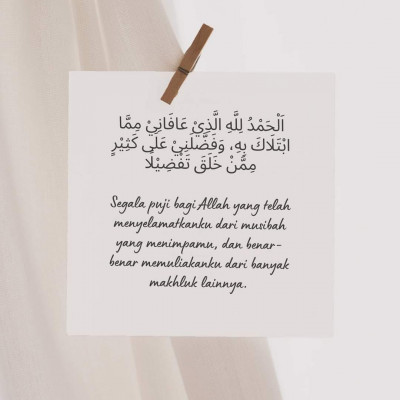 اَلْحَمْدُ لِلَّهِ الَّذِيْ عَافَانِيْ مِمَّا
ابْتَلَاكَ بِهِ، وَفَضَّلَنِيْ عَلَى كَثِيْرٍ
مِمَّنْ خَلَقَ تَفْضِيْلًا
Segala puji bagi Allah yang telah
menyelamatkanku dari musibah
yang menimpamu, dan benar-
benar memuliakanku dari banyak
makhluk lainnya.